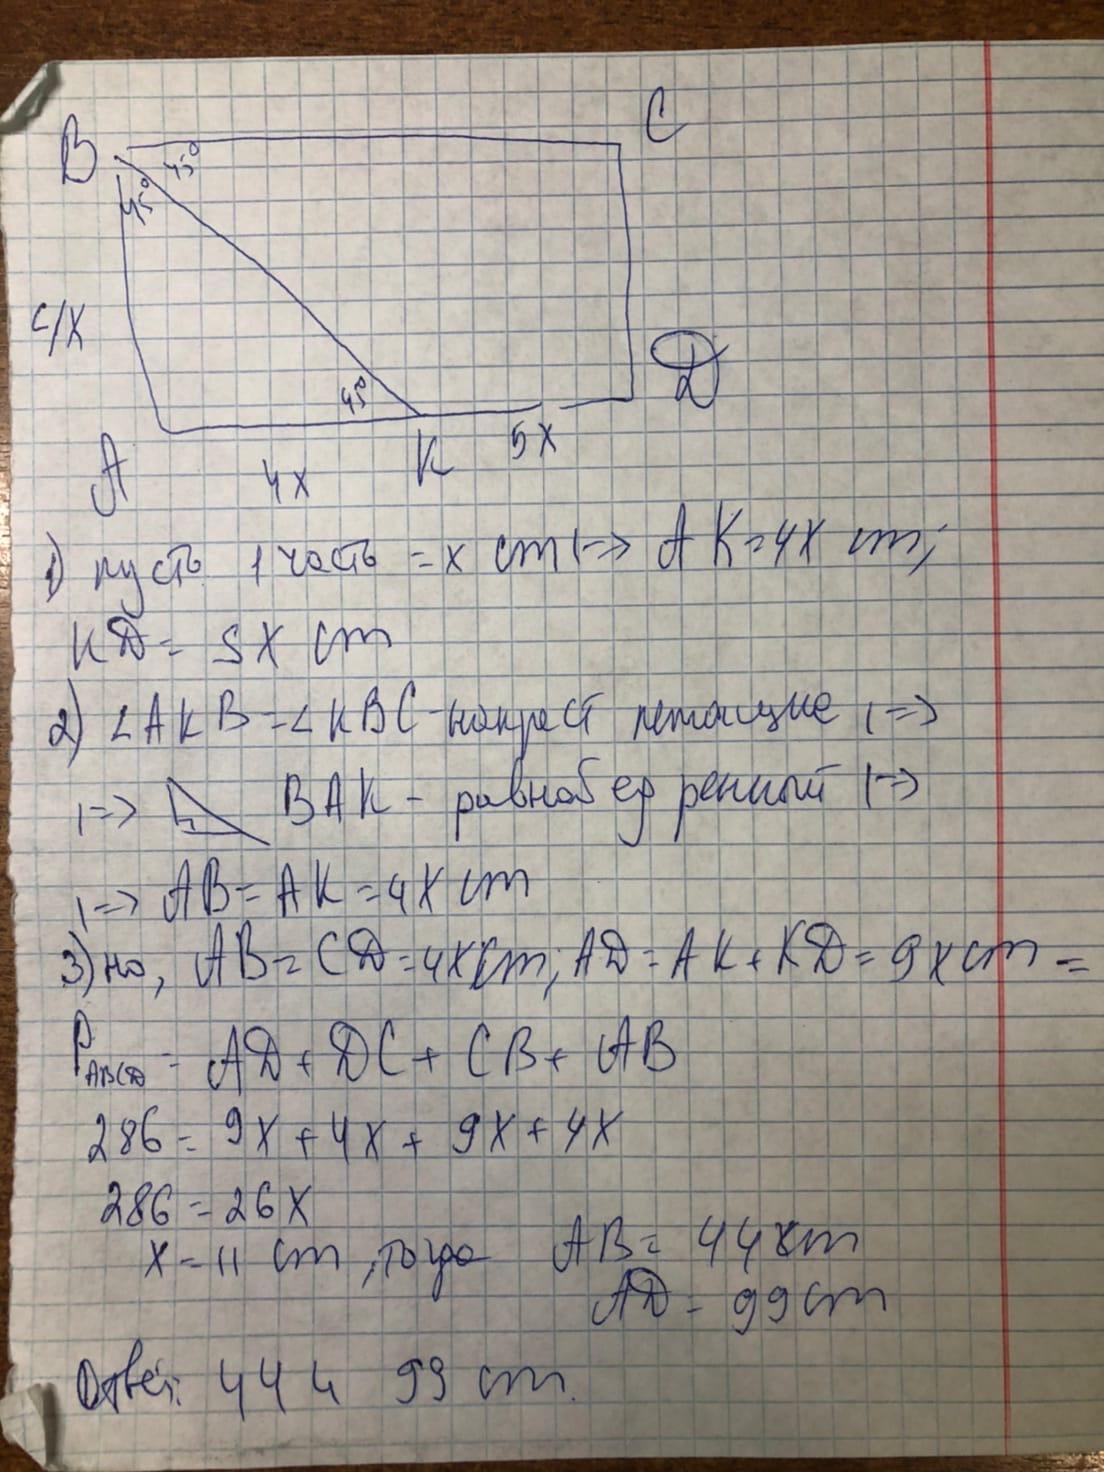 B C
45°
45°
4X
45°
D
A 4X K 5X
1) пусть 1 часть = x cm |=> AK=4X cm;
KD= 5X cm
2) ∠AKB=∠KBC-накрест лежащие |=>
|=> BAK - равнобедренный |=>
|=> AB=AK=4X cm
3) но, AB=CD=4Xcm; AD=AK+KD=9Xcm =
P ABCD = AD+DC+CB+AB
286= 9X+4X+9X+4X
286=26X
X=11 cm, тогда AB= 44cm
AD= 99cm
Ответ: 44 и 99 cm.